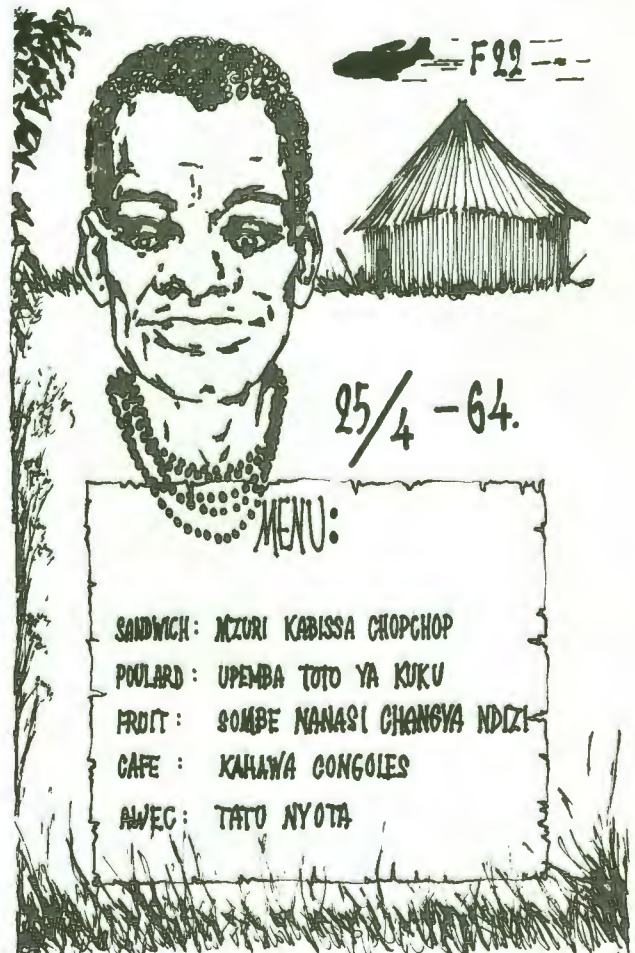 F22
25/4 - 64.
MENU:
SANDWICH: MZURI KABISSA CHOPCHOP
POULARD: UPEMBA TOTO YA KUKU
FRUIT: SOMBE NANASI CHANGYA NDIZI
CAFE: KAHAWA CONGOLES
AWEC: TATO NYOTA